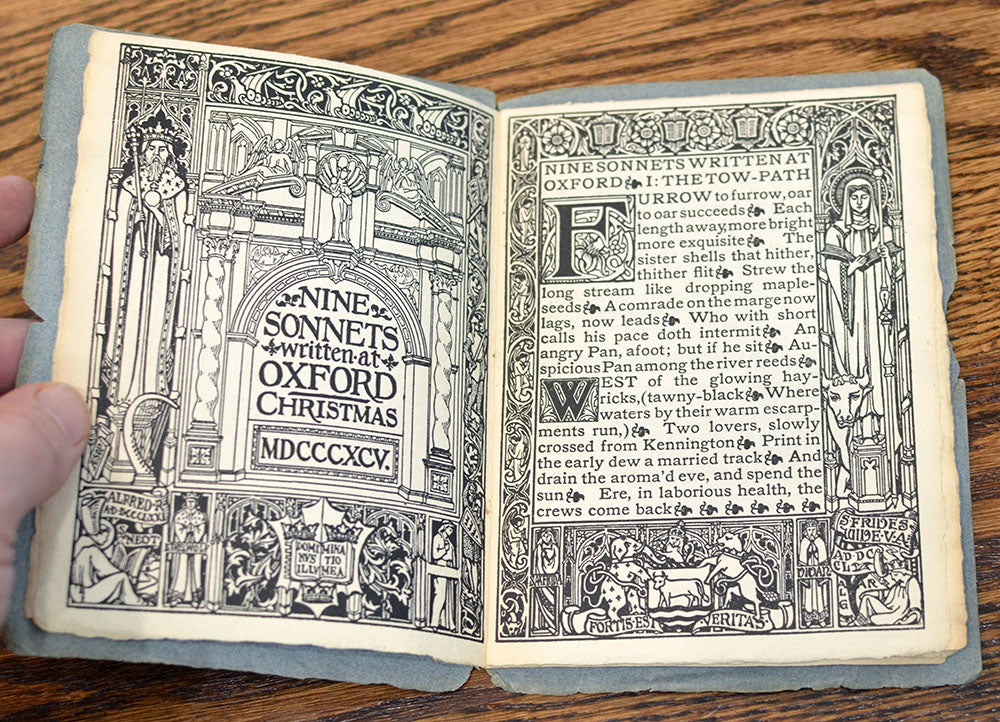 NINE
SONNETS
written at
OXFORD
CHRISTMAS
MDCCCXCV.
ALFRED R
NEOT
DOMI MINA
NVS TIO
ILLV MEA
NINE SONNETS WRITTEN AT
OXFORD I: THE TOW-PATH
FURROW to furrow, oar
to oar succeeds Each
length away, more bright
more exquisite The
sister shells that hither,
thither flit Strew the
long stream like dropping maple-
seeds A comrade on the marge now
lags, now leads Who with short
calls his pace doth intermit An
angry Pan, afoot; but if he sit Au-
spicious Pan among the river reeds
WEST of the glowing hay-
ricks, (tawny-black Where
waters by their warm escarp-
ments run,) Two lovers, slowly
crossed from Kennington Print in
the early dew a married track And
drain the aroma'd eve, and spend the
sun Ere, in laborious health, the
crews come back
S FRIDES
UIDE V A
AD DCC
FORTIS EST VERITAS